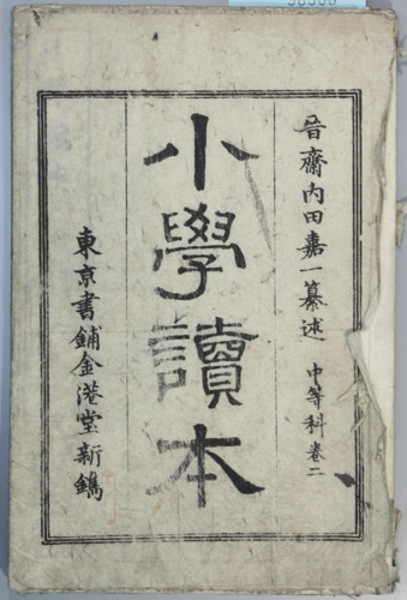 晉齋內田嘉一纂述 中等科卷二
小學讀本
東京書鋪金港堂新鐫